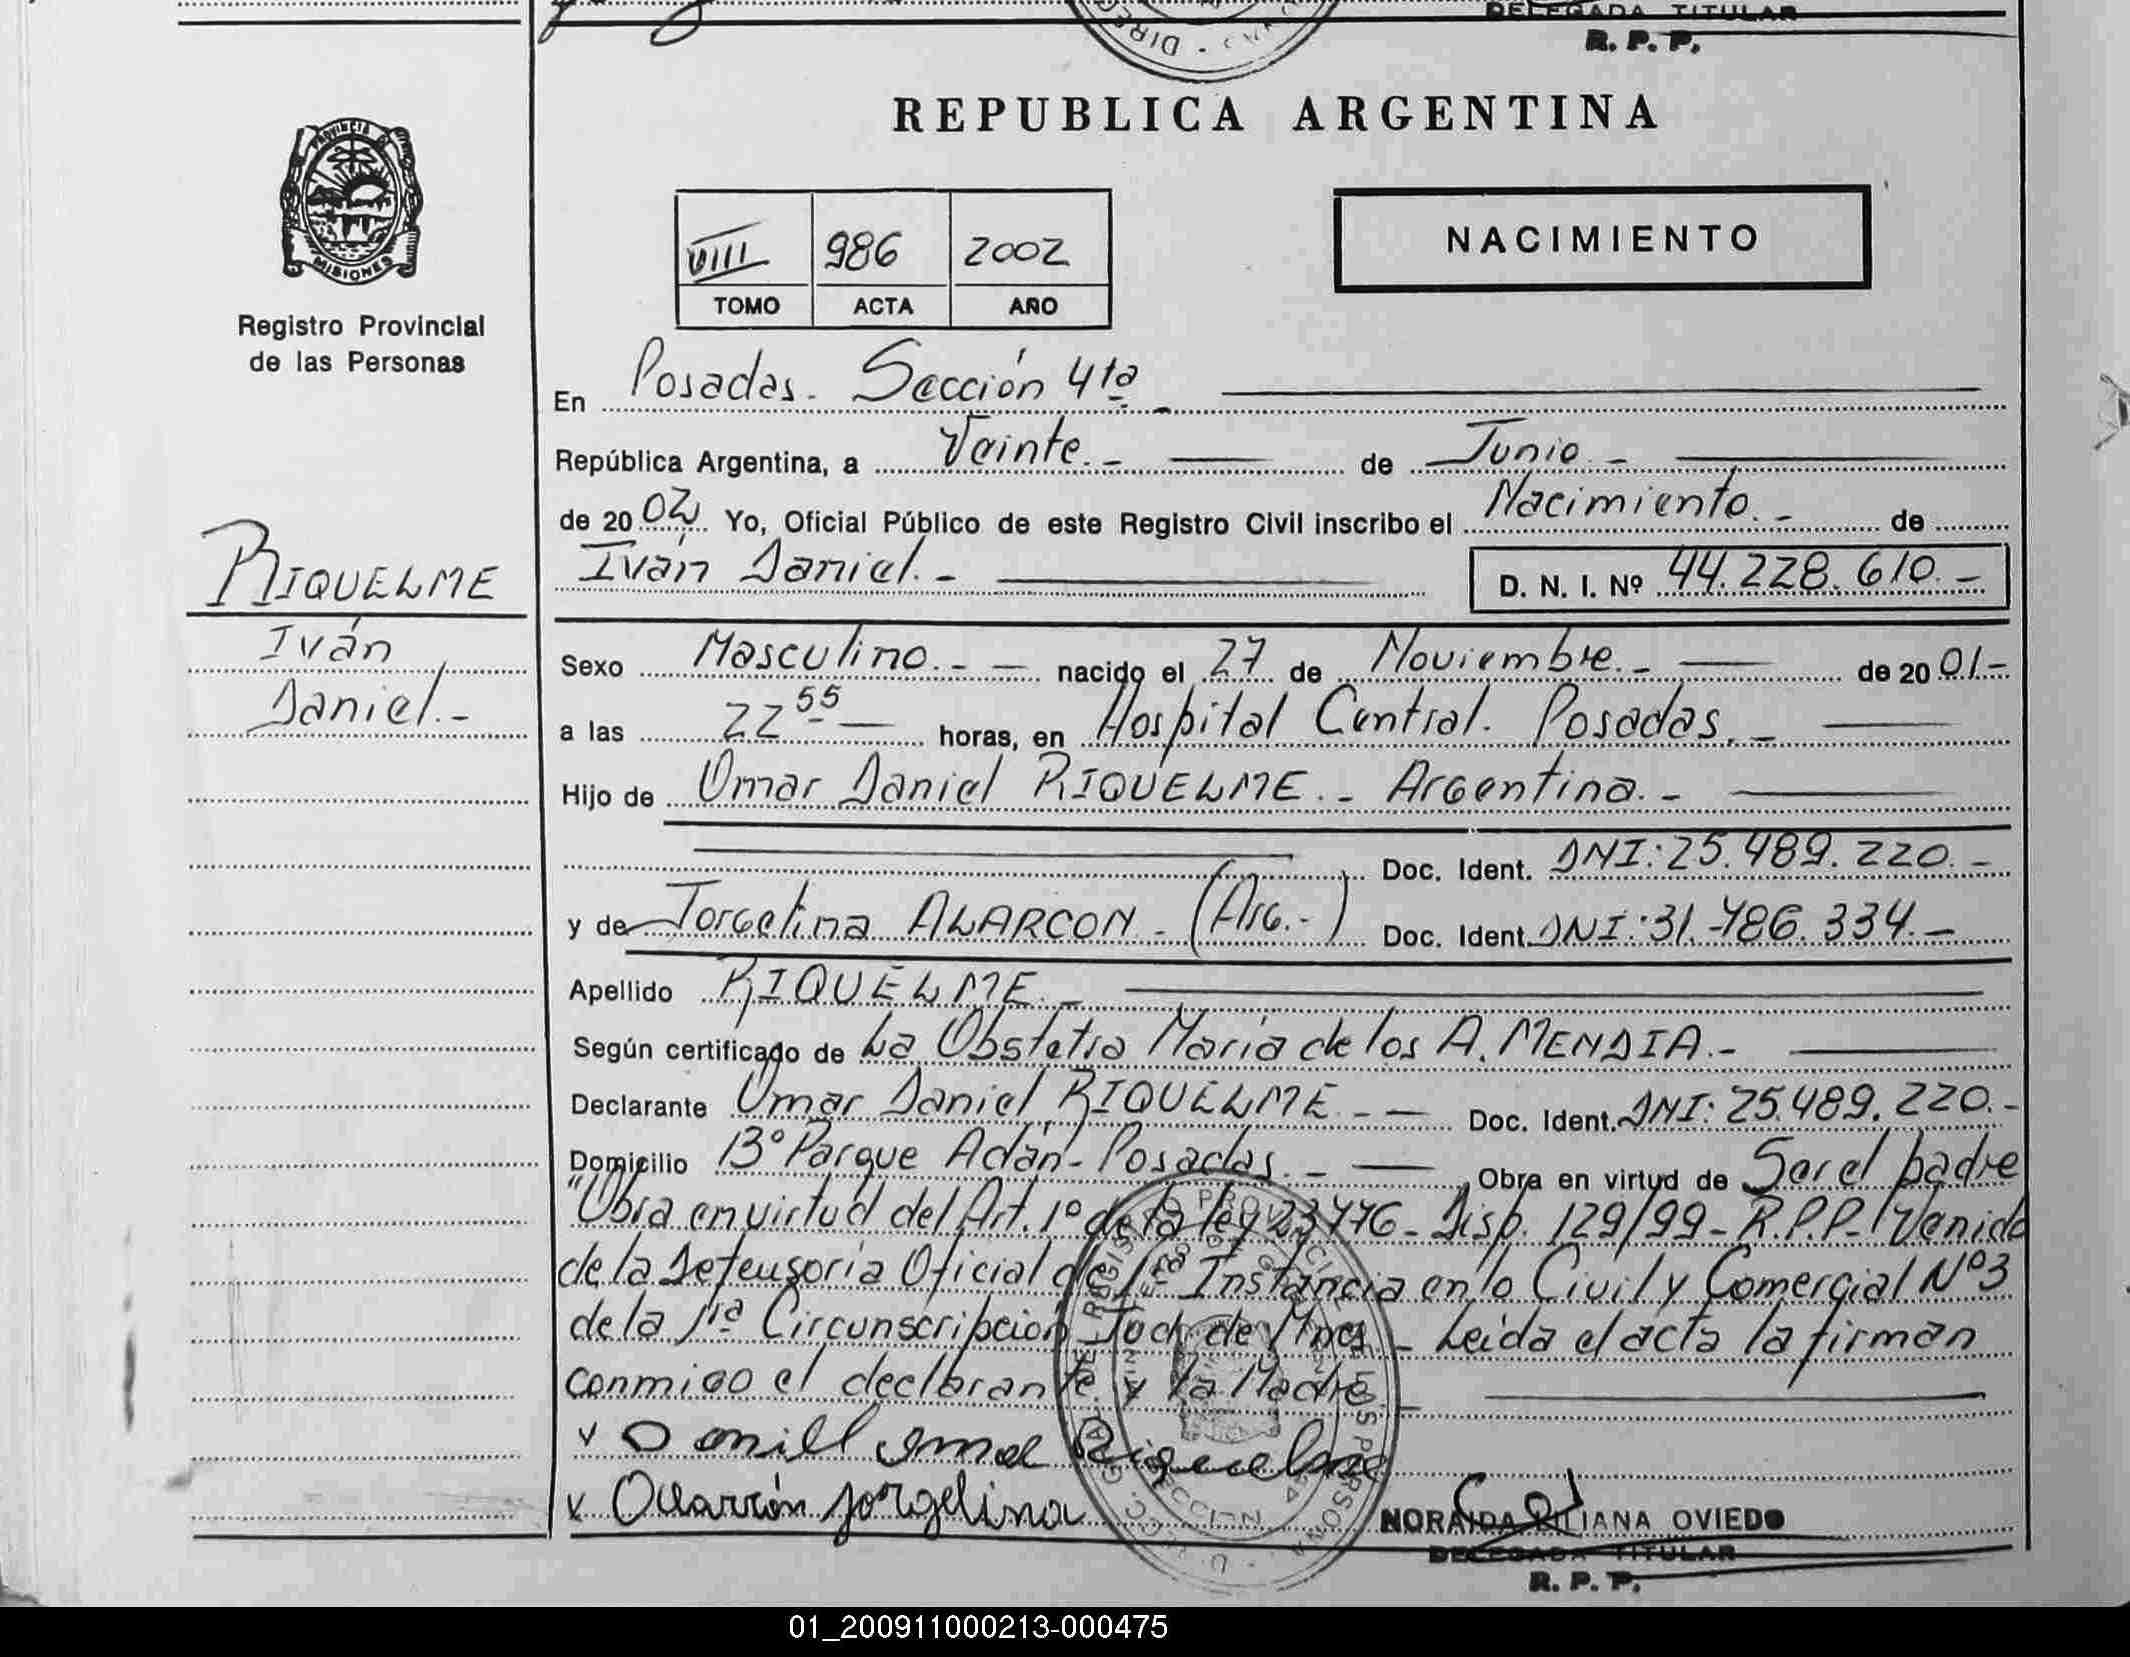 DELEGADA TITULAR
R. P. P.
REPUBLICA ARGENTINA
PROVINCIA DE
MISIONES
Registro Provincial
de las Personas
VIII 986 2002
TOMO ACTA AÑO
NACIMIENTO
En Posadas. Sección 4ta
República Argentina, a Veinte. - de Junio. -
de 2002 Yo, Oficial Público de este Registro Civil inscribo el Nacimiento. - de
Iván Daniel. - D. N. I. Nº 44.228.610. -
RIQUELME
Iván
Daniel. -
Sexo Masculino. - - nacido el 27 de Noviembre. - de 2001.-
a las 22 55 horas, en Hospital Central. Posadas. -
Hijo de Omar Daniel RIQUELME. - Argentina. -
Doc. Ident. DNI: 25.489.220. -
y de Jorgelina ALARCON - (Arg. -) Doc. Ident. DNI: 31.786.334. -
Apellido RIQUELME. -
Según certificado de La Obstetra María de los A. MENDIA. -
Declarante Omar Daniel RIQUELME - - Doc. Ident. DNI: 25.489.220. -
Domicilio 13° Parque Adán - Posadas. - Obra en virtud de Ser el padre
"Obra en virtud del Art. 1° de la ley 23776 - Disp. 129/99 - R.P.P. - Venido
de la Defensoría Oficial de 1ra Instancia en lo Civil y Comercial Nº 3
de la 1ra Circunscripción Jud. de Mnes. - Leída el acta la firman
conmigo el declarante y la Madre. -
Alarcón Jorgelina
NORAIDA LILIANA OVIEDO
DELEGADA TITULAR
R. P. P.
01_200911000213-000475